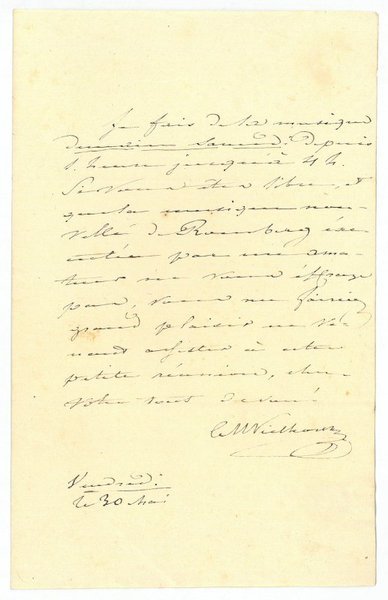 Je fais de la musique
demain Samedi depuis
1. heure jusqu'à 4 h.
Si vous êtes libre, et
que la musique nou-
velle de Romberg éxé-
cutée par un ama-
teur ne vous éffraye
pas, vous me feriez
grand plaisir en ve-
nant assister à cette
petite réunion,
Votre tout dévoué
Vendredi
le 30 Mai